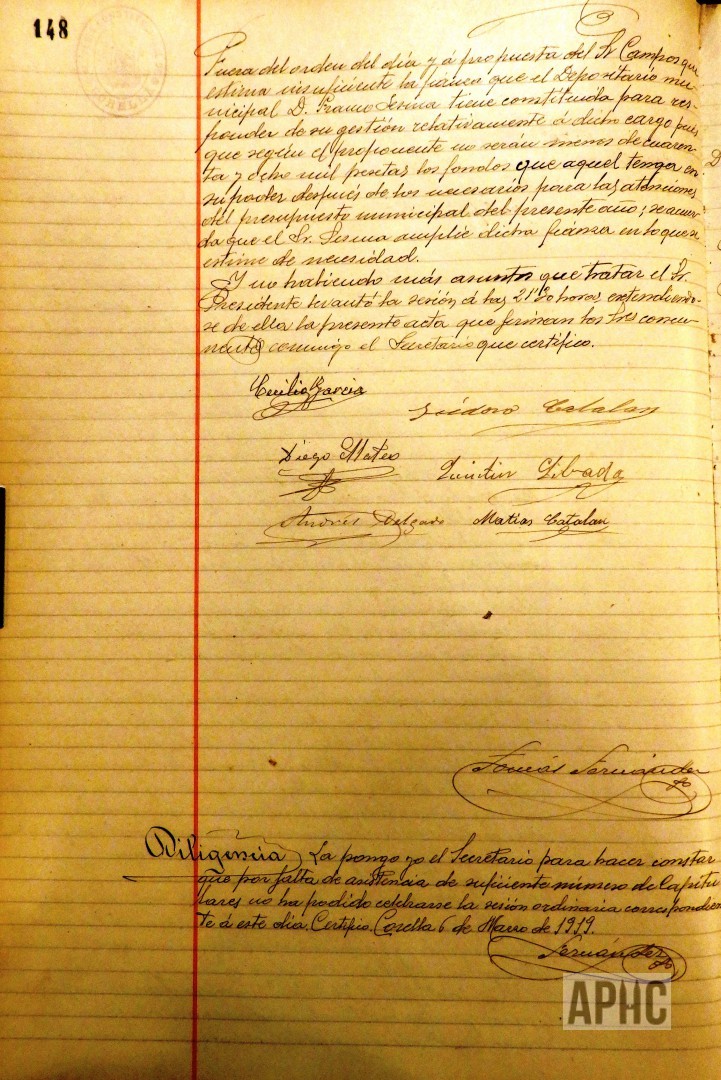 148
Fuera del orden del día y á propuesta del Sr Campos que
estima insuficiente la fianza que el Depositario mu-
nicipal D. Gracio Sesma tiene constituida para res-
ponder de su gestión relativamente á dicho cargo, pues
que según el proponente no serán menos de cuaren-
ta y ocho mil pesetas los fondos que aquel tenga en
su poder después de los necesarios para las atenciones
del presupuesto municipal del presente año; se acuer-
da que el Sr. Sesma amplíe dicha fianza en lo que se
estime de necesidad.
Y no habiendo más asuntos que tratar el Sr.
Presidente levantó la sesión á las 21'30 horas extendiendo-
se de ella la presente acta que firman los Sres concu-
rrentes conmigo el Secretario que certifico.
Cecilio Garcia
Isidoro Catalan
Diego Mateo
Quintin Libada
Andrés Delgado Matias Catalan
Tomás Fernández
Diligencia, La pongo yo el Secretario para hacer constar
que por falta de asistencia de suficiente número de Capitu-
lares no ha podido celebrarse la sesión ordinaria correspondien
te á este día. Certifico. Corella 6 de Marzo de 1919.
Fernández
APHC